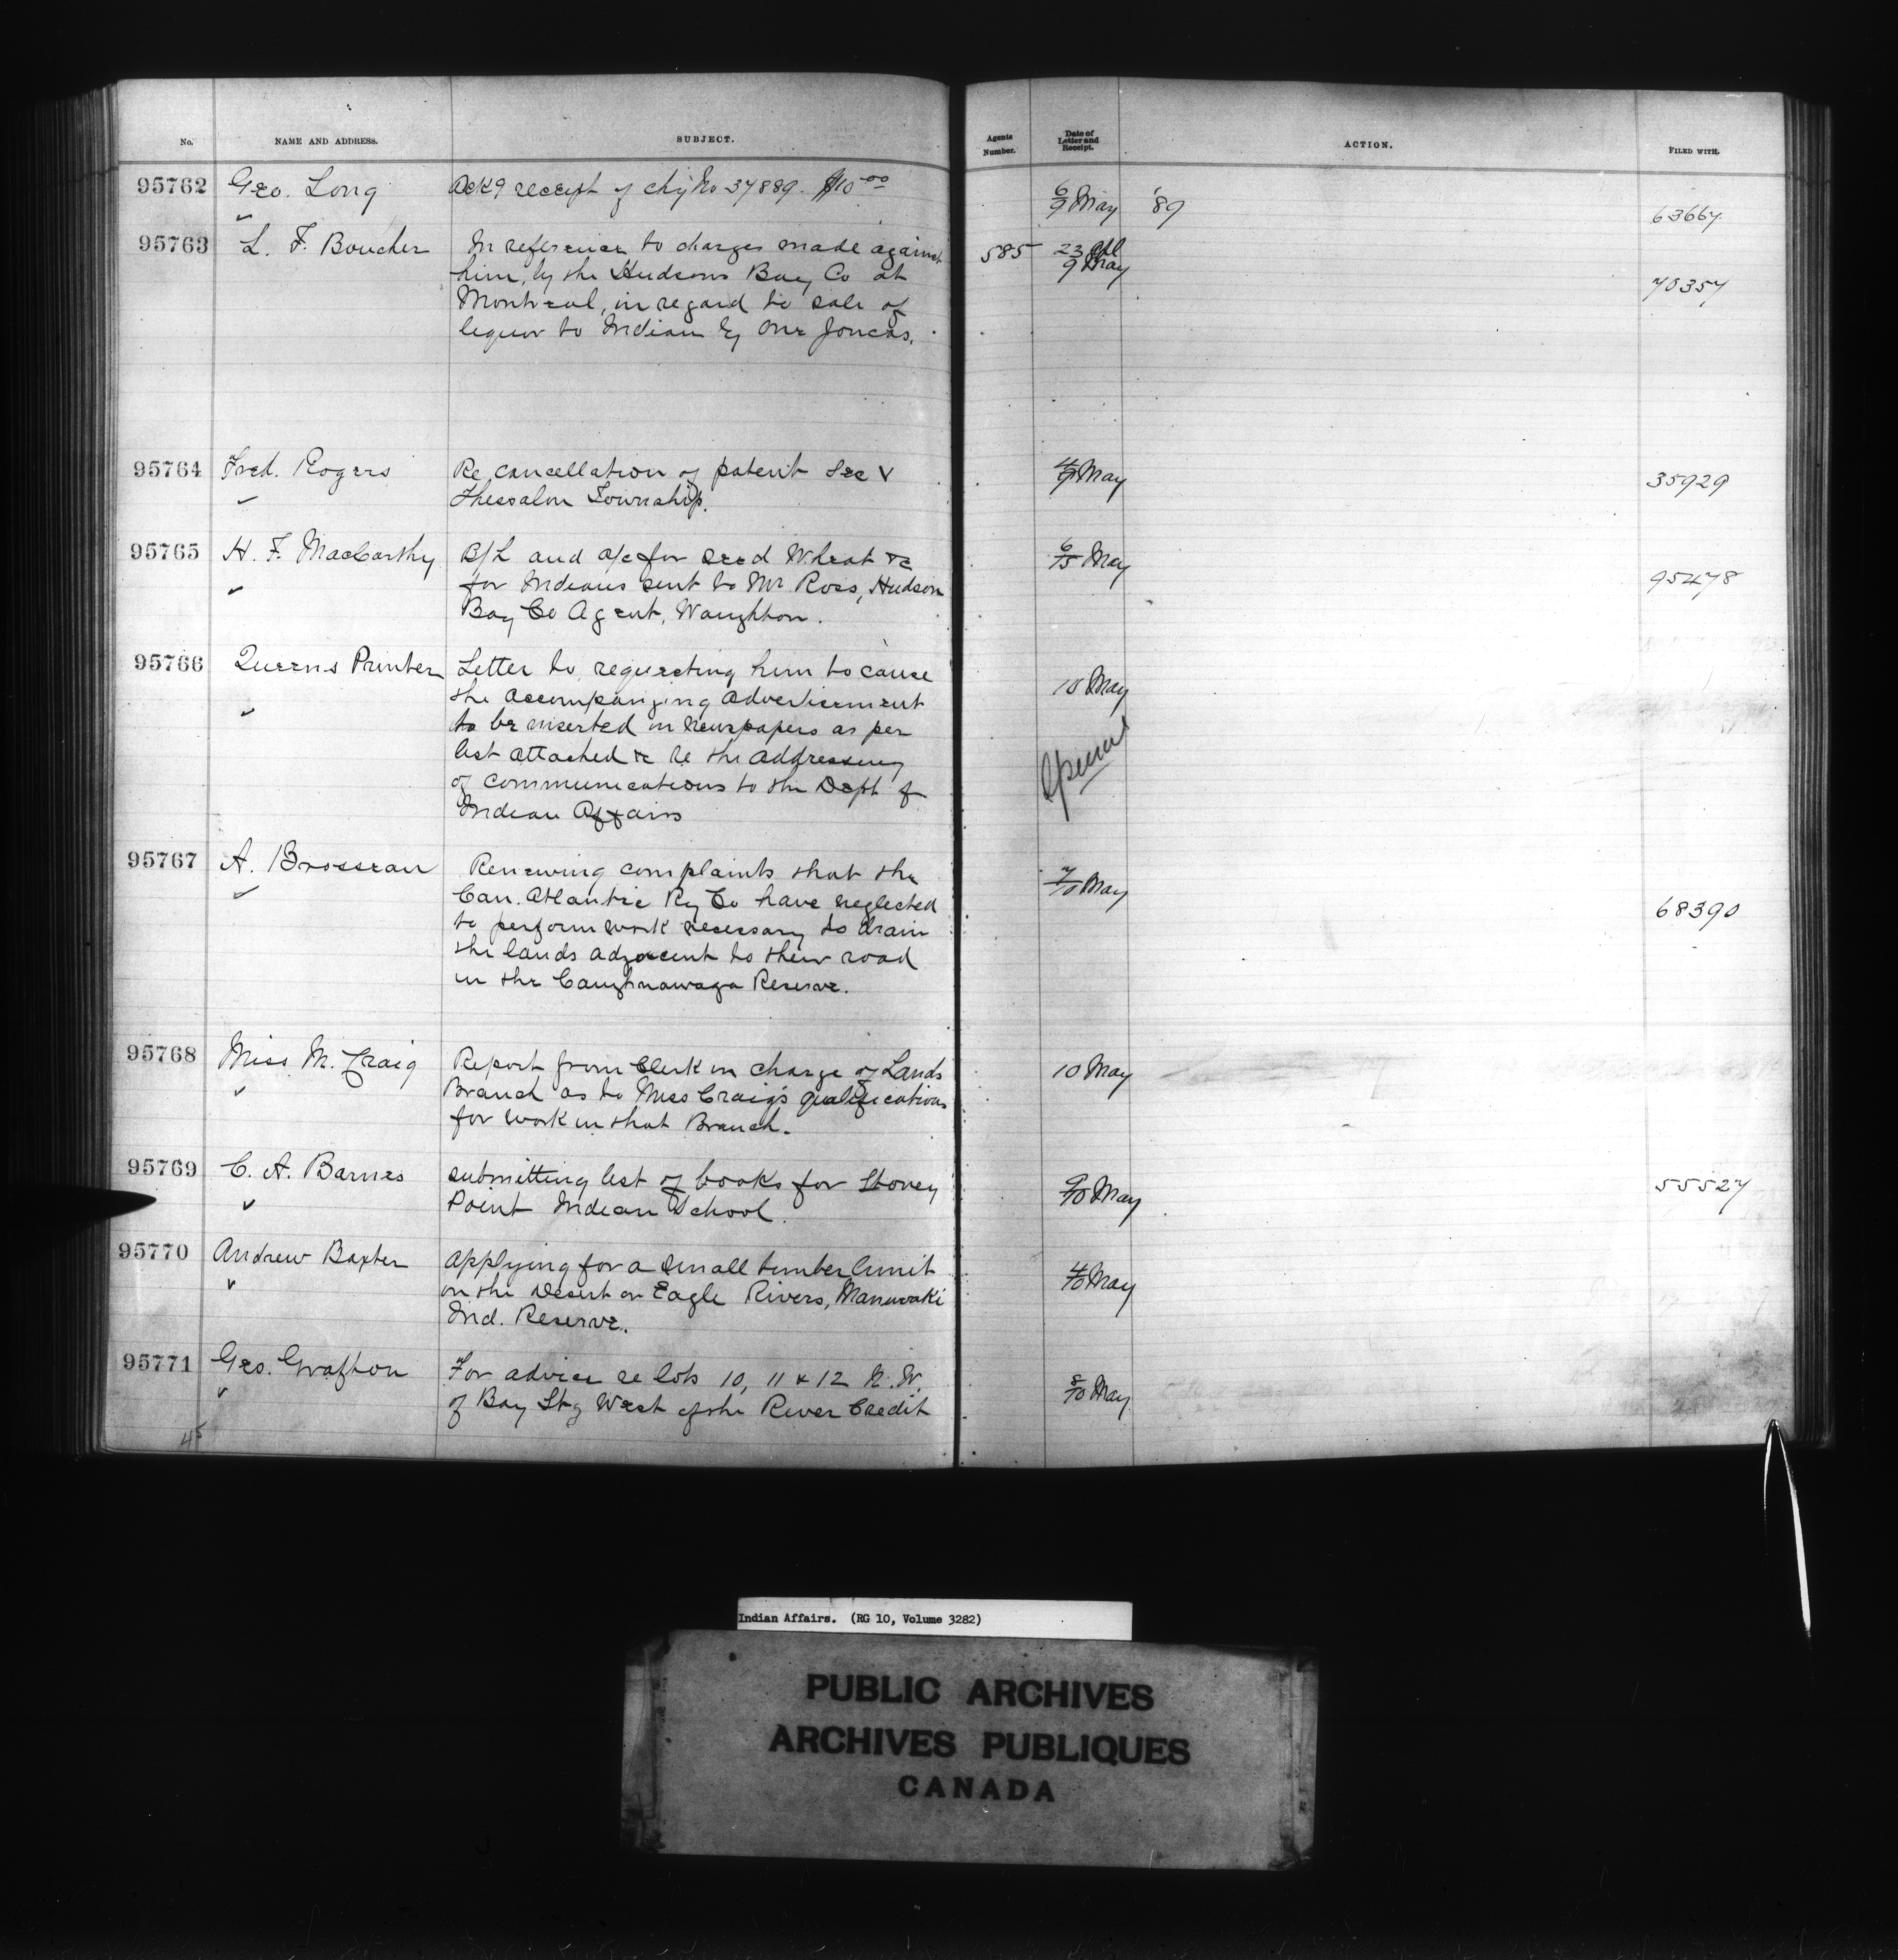 No. NAME AND ADDRESS. SUBJECT. Agents Number. Date of Letter and Receipt. ACTION. FILED WITH.
95762 Geo. Long Ackg receipt of chq No 37889. $10 00 6/9 May '89 63667
95763 L. F. Boucher In reference to charges made against 585 23 Apl 9 May 70357
him, by the Hudsons Bay Co at
Montreal, in regard to sale of
liquor to Indian by one Joncas.
95764 Fred. Rogers Re cancellation of patent Sec V 4/9 May 35929
Thessalon Township.
95765 H. F. MacCarthy B/L and a/c for seed Wheat &c 6/ May 95478
for Indians sent to Mr Ross, Hudson
Bay Co Agent,
95766 Queens Printer Letter to, requesting him to cause 10 May
the accompanying advertisement
to be inserted in newspapers as per
list attached &c re the addressing
of communications to the Dept of
Indian Affairs
95767 A. Brosseau Renewing complaints that the 7/10 May 68390
Can. Atlantic Ry Co have neglected
to perform work necessary to drain
the lands adjacent to their road
in the Caughnawaga Reserve.
95768 Miss M. Craig Report from Clerk in charge of Lands 10 May
Branch as to Miss Craig's qualifications
for work in that Branch.
95769 C. A. Barnes submitting list of books for Stoney 9/10 May 55527
Point Indian School.
95770 Andrew Baxter Applying for a small timber limit 4/10 May
on the Desert or Eagle Rivers, Maniwaki
Ind. Reserve.
95771 Geo. Grafton For advice re lots 10, 11 & 12 N. W. 8/10 May
of Bay St West of the River Credit
45
Indian Affairs. (RG 10, Volume 3282)
PUBLIC ARCHIVES
ARCHIVES PUBLIQUES
CANADA